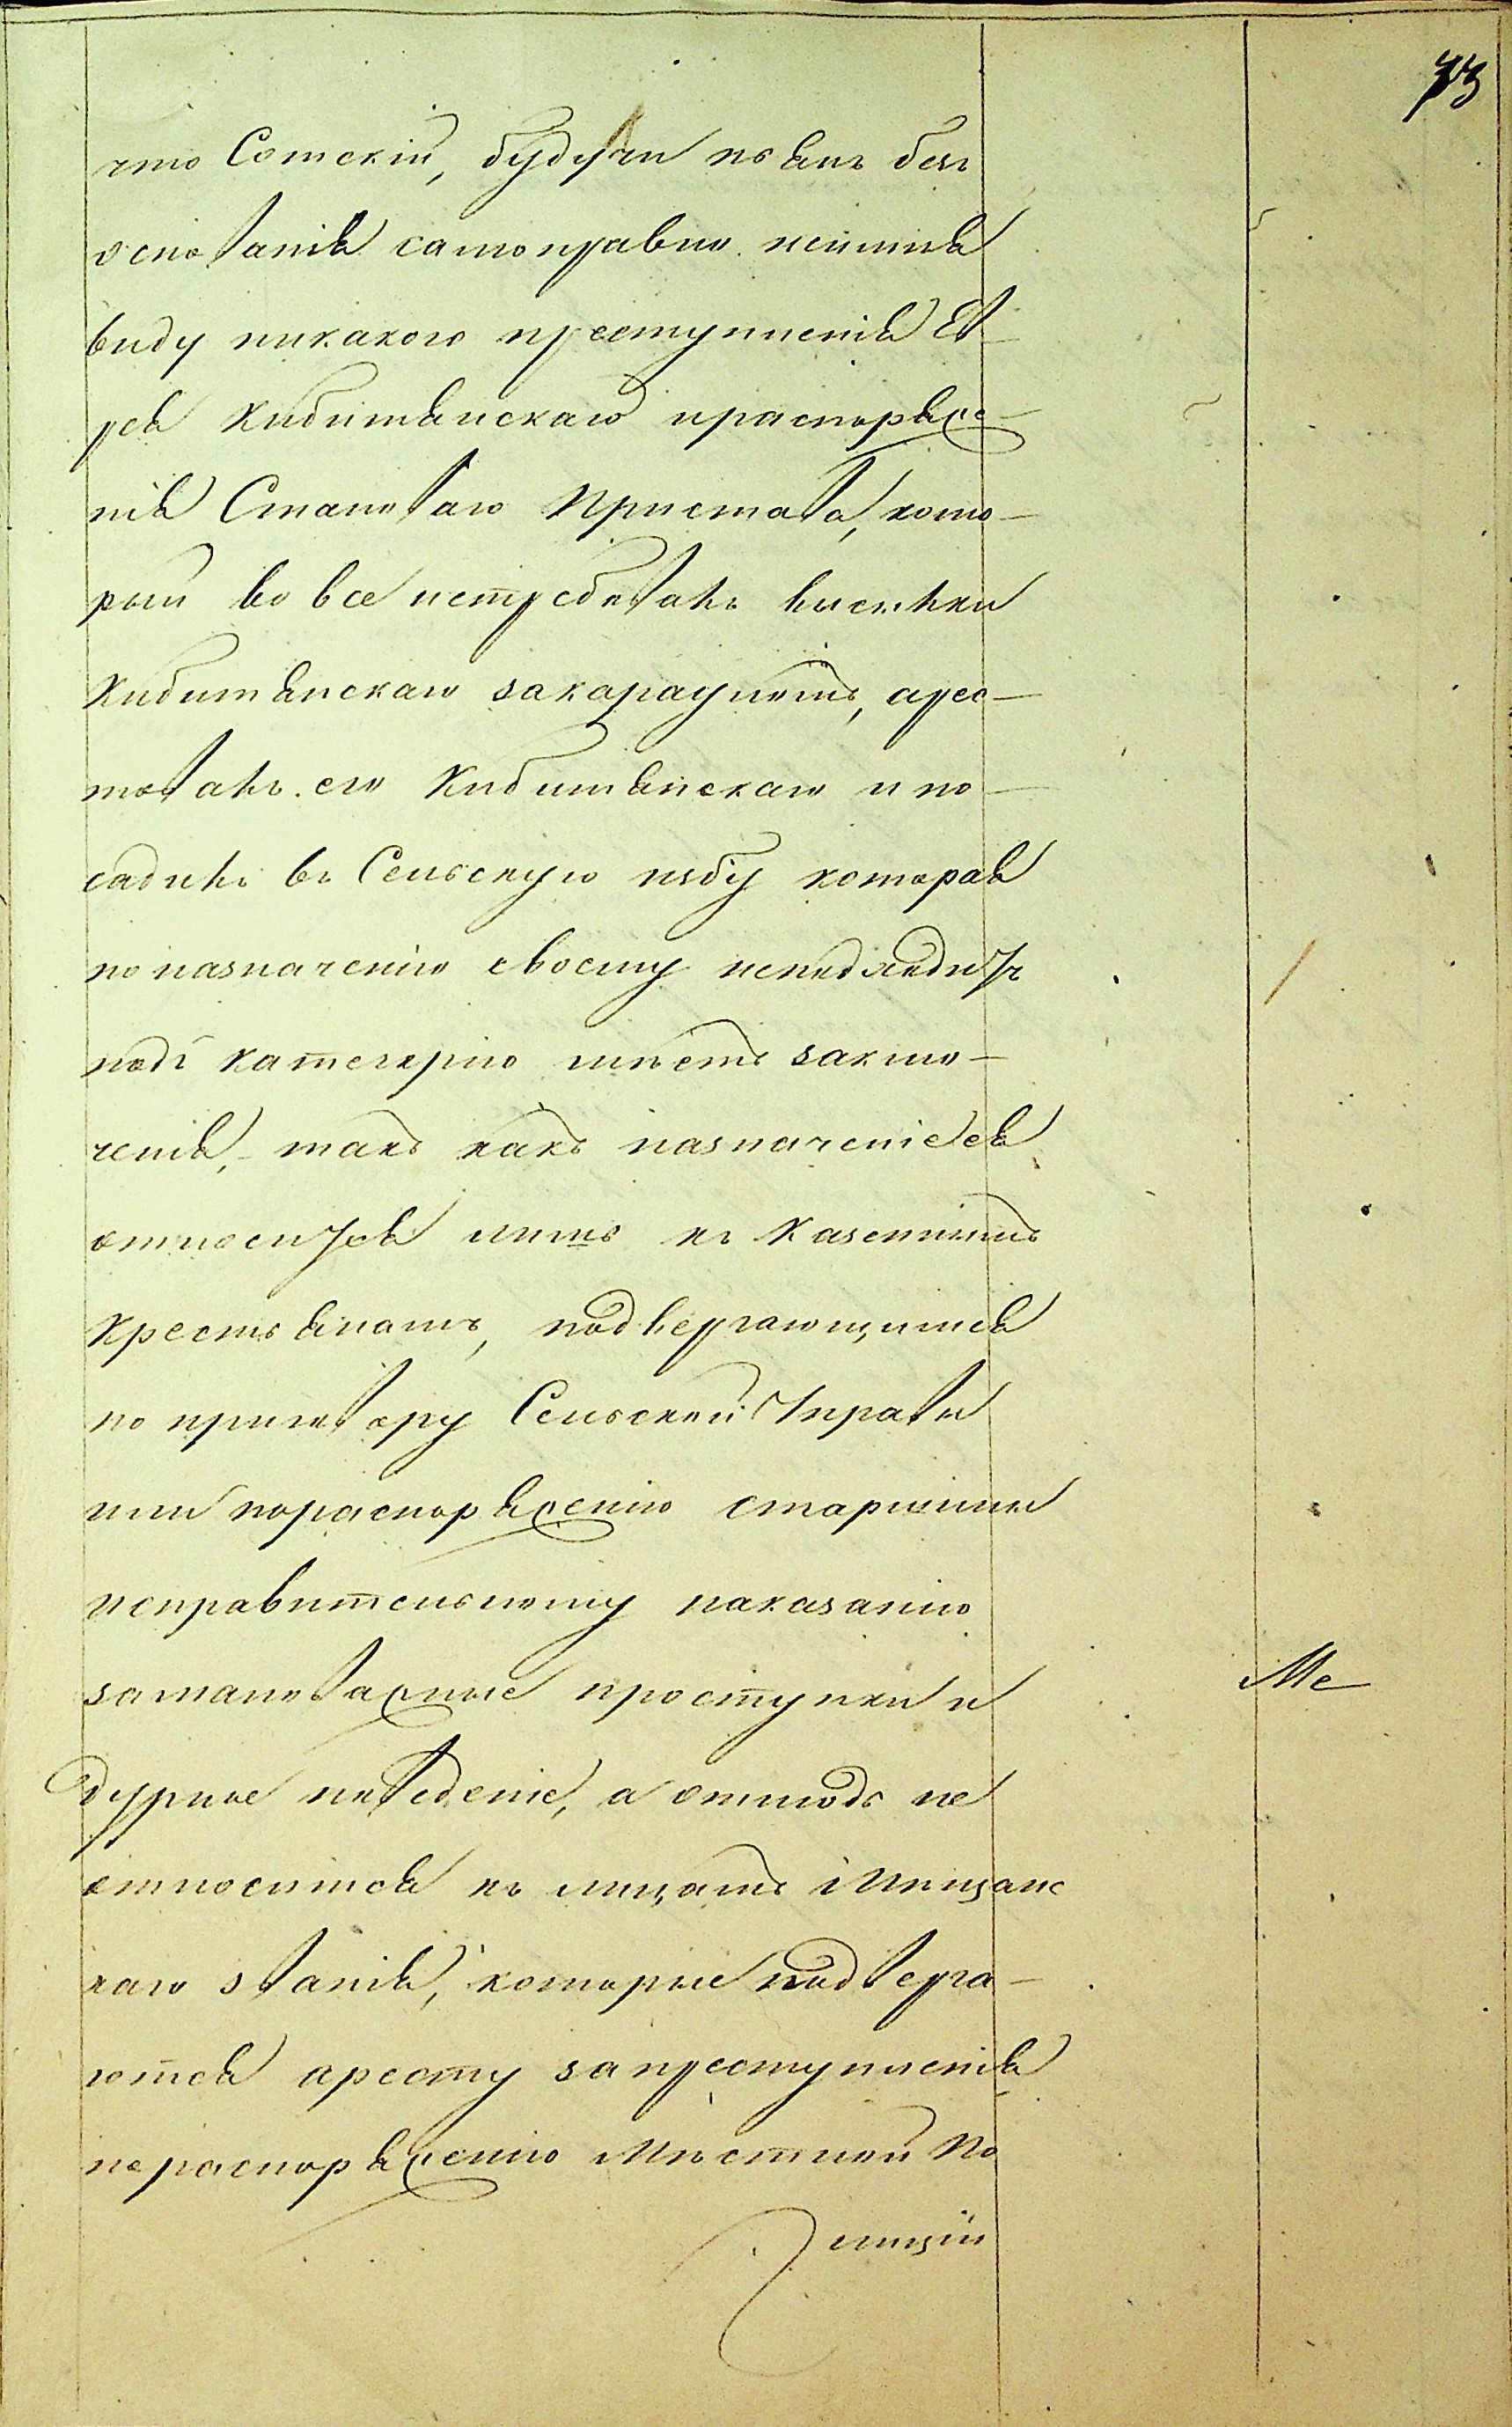 73
что Сотскій, будучи пьянъ безъ
основанія самоправно неимѣя
виду никакого преступленія Ев
рея Хибитянскаго и распоряже-
нія Становаго Пристава, кото-
рый во все истребовалъ высылки
Хибитянскаго закарауломъ, арес-
товалъ его Хибитянскаго и по-
садилъ въ Сельскую избу которая
по назначенію своему неподходитъ
подъ категорію мѣстъ заклю-
ченія, такъ какъ назначеніе ея
относится лишь къ Казеннымъ
Крестьянамъ, подвергающимся
по приговору Сельской Управы
или пораспоряженію старшины
исправительному наказанію
замаловажные проступки и
дурное поведеніе, а отнюдь не
относится къ лицамъ Мѣщанс
каго званія, которые подверга-
ются аресту за преступленія
по распоряженію Мѣстной По
лиціи
Ме